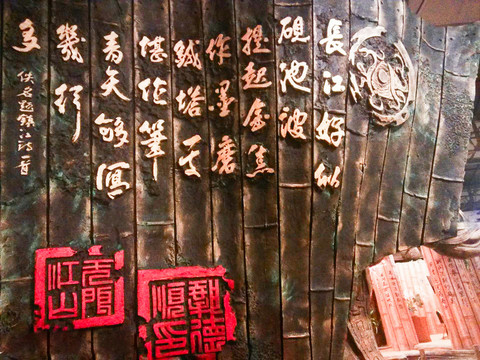 長江好似
硯池波
提起金焦
作墨磨
鐵塔一支
堪作筆
青天够寫
幾行
多
佚名題鎮江詩一首
鄭德順印
江山